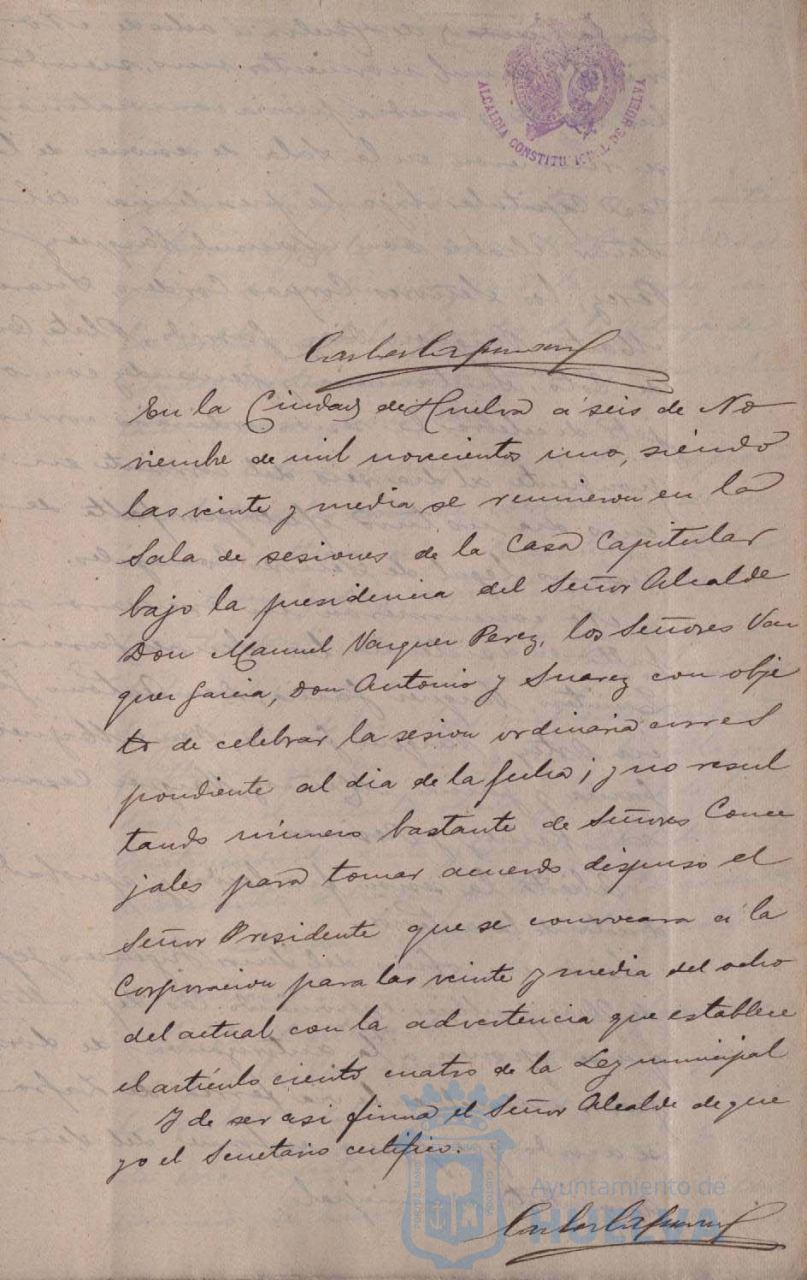 ALCALDIA CONSTITUCIONAL DE HUELVA
Carlos
En la Ciudad de Huelva á seis de No
viembre de mil novecientos uno, siendo
las veinte y media se reunieron en la
Sala de sesiones de la Casa Capitular
bajo la presidencia del Señor Alcalde
Don Manuel Vazquez Perez, los Señores Vaz
quez Garcia, Don Antonio y Suarez con obje
to de celebrar la sesion ordinaria corres
pondiente al dia de la fecha; y no resul
tando número bastante de Señores Conce
jales para tomar acuerdo dispuso el
Señor Presidente que se convocara á la
Corporacion para las veinte y media del ocho
del actual con la advertencia que establece
el artículo ciento cuatro de la Ley municipal
Y de ser asi firma el Señor Alcalde de que
yo el Secretario certifico.
Ayuntamiento de
HUELVA
Carlos